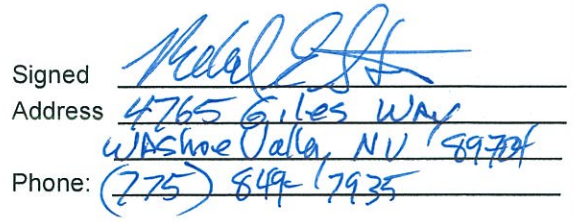 Signed
Address 4765 Giles Way
Washoe Valley, NV 89704
Phone: (775) 849-7935